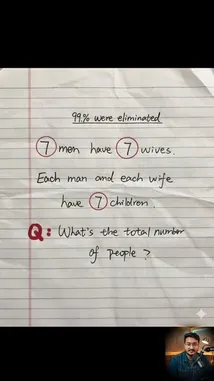 99% were eliminated
7 men have 7 wives.
Each man and each wife
have 7 children.
Q: What's the total number
of people ?